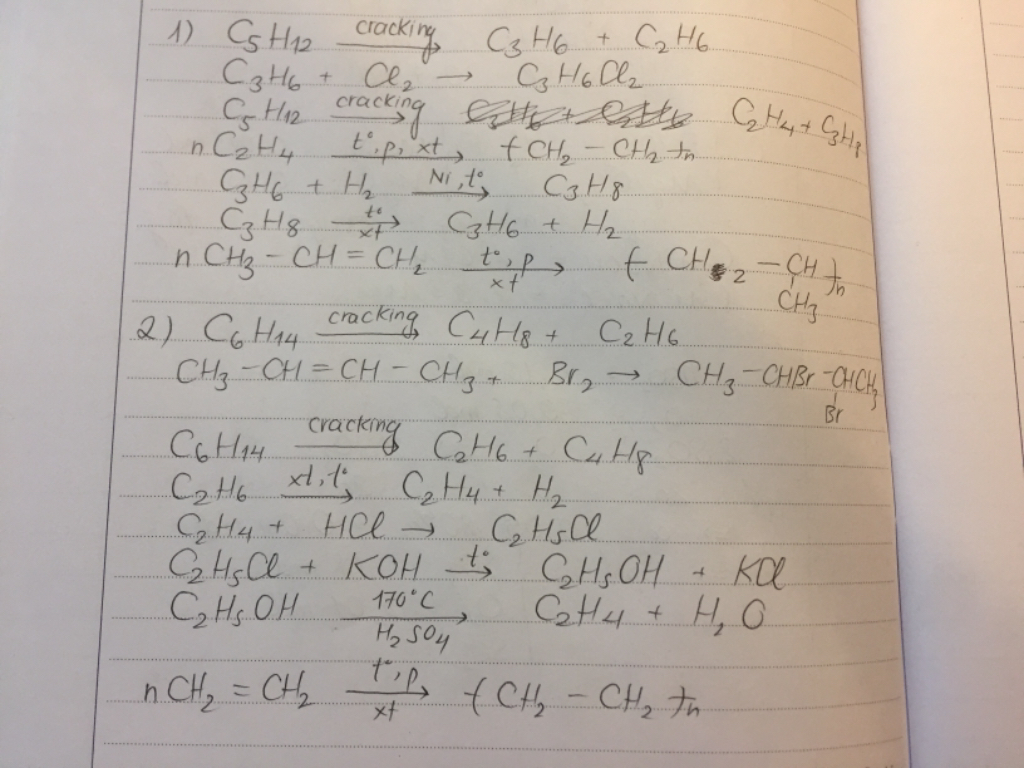 1) C5H12 cracking→ C3H6 + C2H6
C3H6 + Cl2 → C3H6Cl2
C5H12 cracking→ C2H4 + C3H8
nC2H4 t°, p, xt→ (CH2 – CH2)n
C3H6 + H2 Ni, t°→ C3H8
C3H8 t° xt→ C3H6 + H2
nCH3 – CH = CH2 t°, p xt→ (CH2 – CH)n
CH3
2) C6H14 cracking→ C4H8 + C2H6
CH3 – CH = CH – CH3 + Br2 → CH3 – CHBr – CHCH3
Br
C6H14 cracking→ C2H6 + C4H8
C2H6 xt, t°→ C2H4 + H2
C2H4 + HCl → C2H5Cl
C2H5Cl + KOH t°→ C2H5OH + KCl
C2H5OH 170°C H2SO4→ C2H4 + H2O
nCH2 = CH2 t°, p xt→ (CH2 – CH2)n